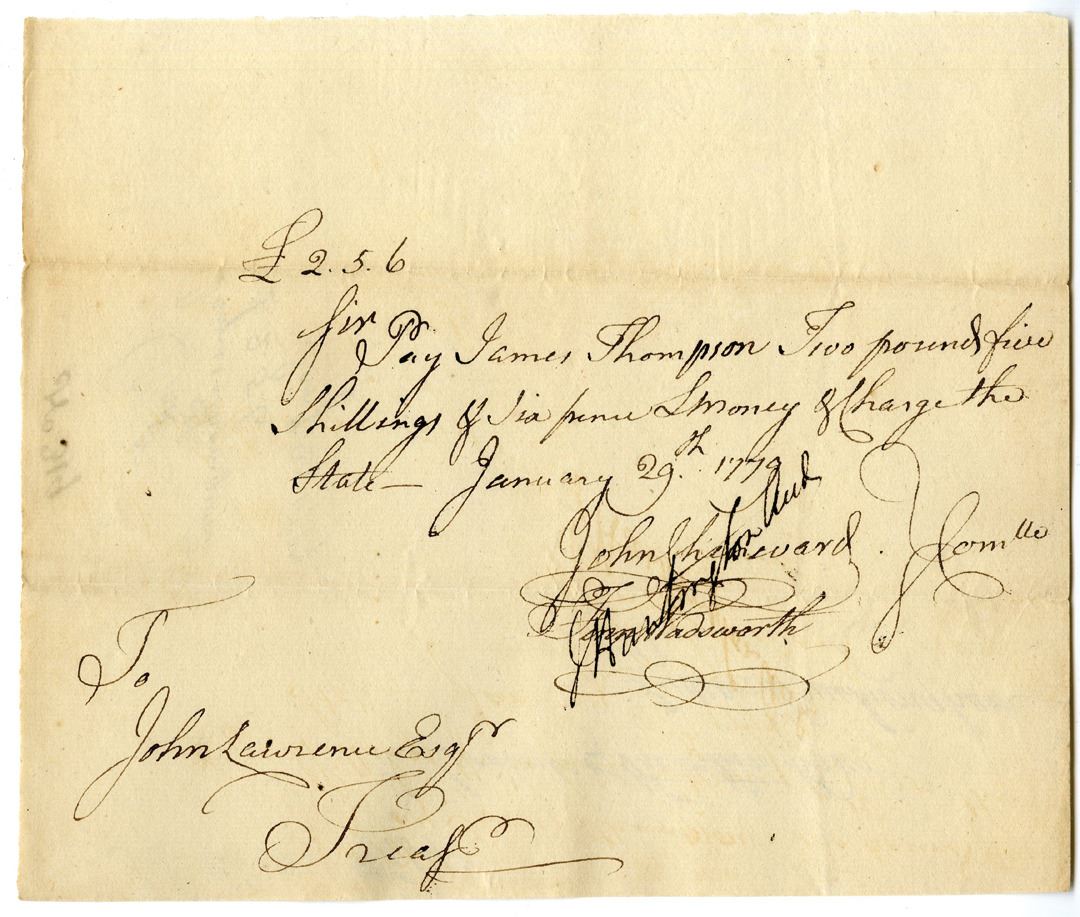 £ 2. 5. 6
Sir
Pay James Thompson Two pound five
Shillings & Six pence L Money & Charge the
State — January 29th. 1779
John Chenevard . Comtte
Huntington Aud
Fenn Wadsworth
To
John Lawrence Esqr
Treasr